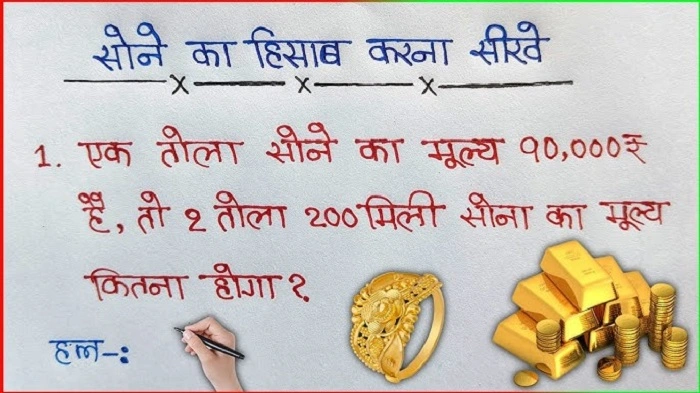 सोने का हिसाब करना सीखे
1. एक तोला सोने का मूल्य 90,000₹
है, तो 2 तोला 200 मिली सोना का मूल्य
कितना होगा?
हल-: